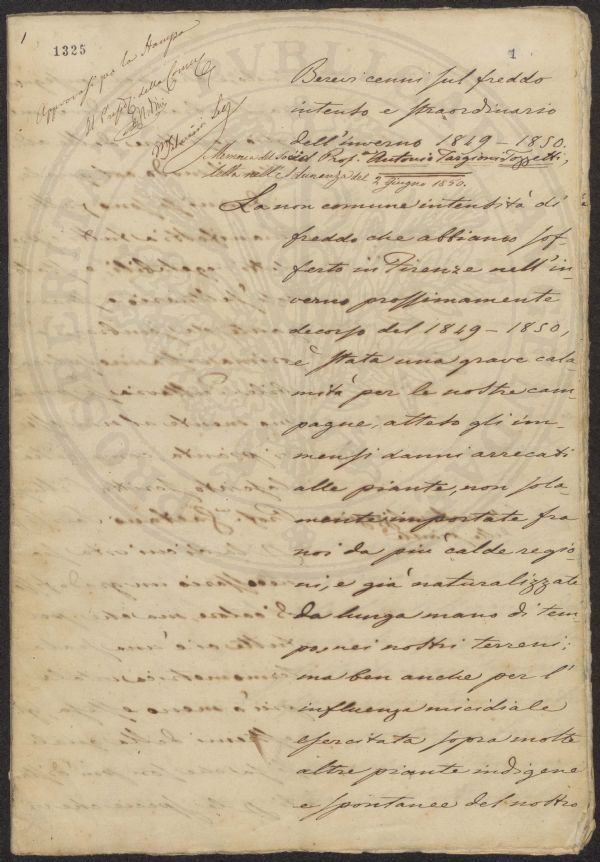 1325
1
Approvasi per la Stampa
Brevi cenni sul freddo
intenso e straordinario
dell'inverno 1849 – 1850.
Memoria del Socio Prof. Antonio Targioni Tozzetti,
letta nell'Adunanza del 2 Giugno 1850.
La non comune intensità di
freddo che abbiamo sof-
ferto in Firenze nell'in-
verno prossimamente
decorso del 1849 – 1850,
è stata una grave cala-
mità per le nostre cam-
pagne, atteso gli im-
mensi danni arrecati
alle piante, non sola-
mente importate fra
noi da più calde regio-
ni, e già naturalizzate
da lunga mano di tem-
po, nei nostri terreni;
ma ben anche per l'
influenza micidiale
esercitata sopra molte
altre piante indigene
e spontanee del nostro